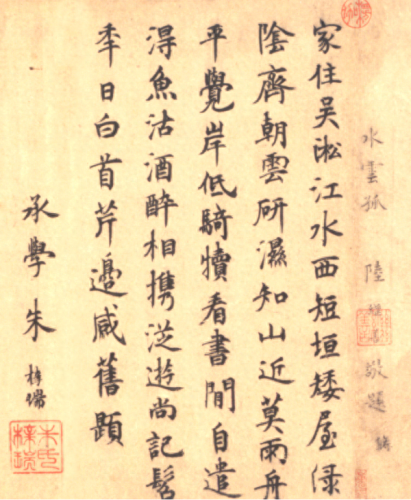 水雲孤 陸 敬題
家住吴淞江水西短垣矮屋緑
陰齊朝雲研濕知山近莫雨舟
平覺岸低騎犢看書閒自遣
淂魚沽酒醉相携泛遊尚記髫
秊日白首芹邊感舊題
承學朱